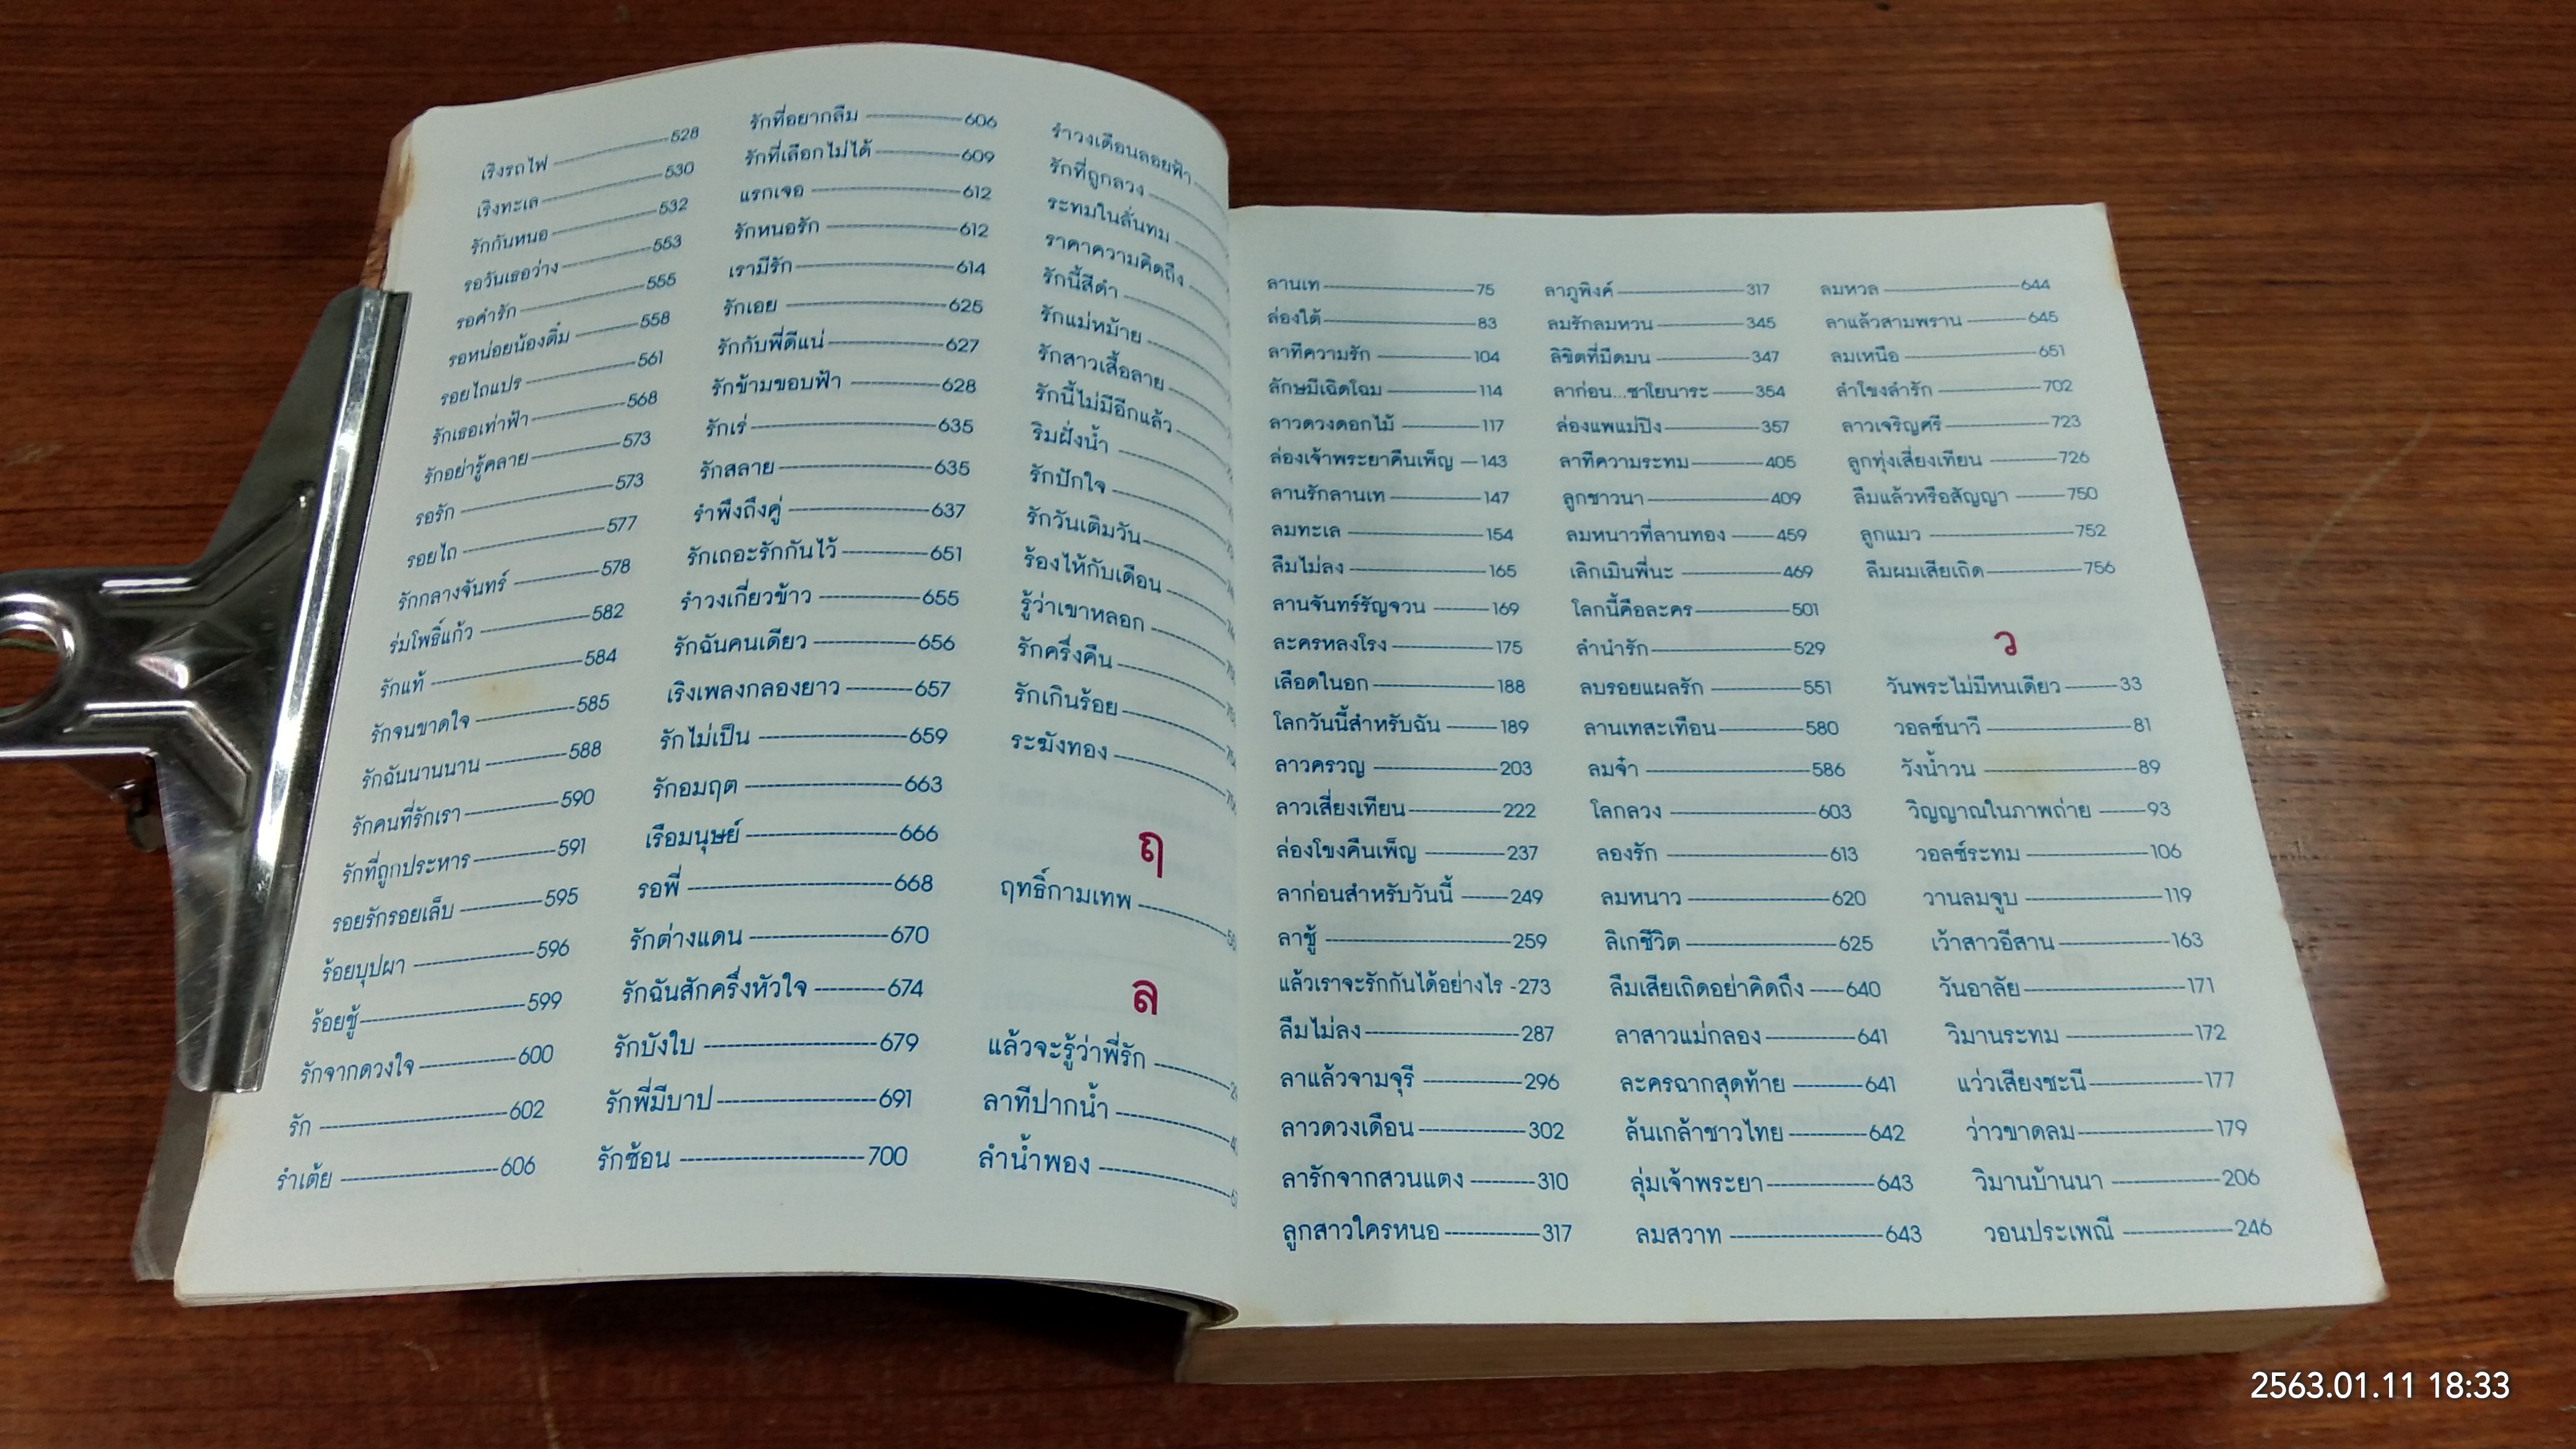 เริงรถไฟ 528
เริงทะเล 530
รักกันหนอ 532
รอวันเธอว่าง 553
รอคำรัก 555
รอหน่อยน้องติ๋ม 558
รอยไถแปร 561
รักเธอเท่าฟ้า 568
รักอย่ารู้คลาย 573
รอรัก 573
รอยไถ 577
รักกลางจันทร์ 578
ร่มโพธิ์แก้ว 582
รักแท้ 584
รักจนขาดใจ 585
รักฉันนานนาน 588
รักคนที่รักเรา 590
รักที่ถูกประหาร 591
รอยรักรอยเล็บ 595
ร้อยบุปผา 596
ร้อยชู้ 599
รักจากดวงใจ 600
รัก 602
รำเต้ย 606
รักที่อยากลืม 606
รักที่เลือกไม่ได้ 609
แรกเจอ 612
รักหนอรัก 612
เรามีรัก 614
รักเอย 625
รักกับพี่ดีแน่ 627
รักข้ามขอบฟ้า 628
รักเร่ 635
รักสลาย 635
รำพึงถึงคู่ 637
รักเถอะรักกันไว้ 651
รำวงเกี่ยวข้าว 655
รักฉันคนเดียว 656
เริงเพลงกลองยาว 657
รักไม่เป็น 659
รักอมฤต 663
เรือมนุษย์ 666
รอพี่ 668
รักต่างแดน 670
รักฉันสักครึ่งหัวใจ 674
รักบังใบ 679
รักพี่มีบาป 691
รักซ้อน 700
รำวงเดือนลอยฟ้า
รักที่ถูกลวง
ระทมในลั่นทม
ราคาความคิดถึง
รักนี้สีดำ
รักแม่หม้าย
รักสาวเสื้อลาย
รักนี้ไม่มีอีกแล้ว
ริมฝั่งน้ำ
รักปักใจ
รักวันเติมวัน
ร้องไห้กับเดือน
รู้ว่าเขาหลอก
รักครึ่งคืน
รักเกินร้อย
ระฆังทอง
ฤ
ฤทธิ์กามเทพ
ล
แล้วจะรู้ว่าพี่รัก
ลาทีปากน้ำ
ลำน้ำพอง
ลานเท 75
ล่องใต้ 83
ลาทีความรัก 104
ลักษมีเฉิดโฉม 114
ลาวดวงดอกไม้ 117
ล่องเจ้าพระยาคืนเพ็ญ 143
ลานรักลานเท 147
ลมทะเล 154
ลืมไม่ลง 165
ลานจันทร์รัญจวน 169
ละครหลงโรง 175
เลือดในอก 188
โลกวันนี้สำหรับฉัน 189
ลาวครวญ 203
ลาวเสี่ยงเทียน 222
ล่องโขงคืนเพ็ญ 237
ลาก่อนสำหรับวันนี้ 249
ลาชู้ 259
แล้วเราจะรักกันได้อย่างไร 273
ลืมไม่ลง 287
ลาแล้วจามจุรี 296
ลาวดวงเดือน 302
ลารักจากสวนแตง 310
ลูกสาวใครหนอ 317
ลาภูพิงค์ 317
ลมรักลมหวน 345
ลิขิตที่มืดมน 347
ลาก่อน...ซาโยนาระ 354
ล่องแพแม่ปิง 357
ลาทีความระทม 405
ลูกชาวนา 409
ลมหนาวที่ลานทอง 459
เลิกเมินพี่นะ 469
โลกนี้คือละคร 501
ลำนำรัก 529
ลบรอยแผลรัก 551
ลานเทสะเทือน 580
ลมจ๋า 586
โลกลวง 603
ลองรัก 613
ลมหนาว 620
ลิเกชีวิต 625
ลืมเสียเถิดอย่าคิดถึง 640
ลาสาวแม่กลอง 641
ละครฉากสุดท้าย 641
ล้นเกล้าชาวไทย 642
ลุ่มเจ้าพระยา 643
ลมสวาท 643
ลมหวล 644
ลาแล้วสามพราน 645
ลมเหนือ 651
ลำโขงลำรัก 702
ลาวเจริญศรี 723
ลูกทุ่งเสี่ยงเทียน 726
ลืมแล้วหรือสัญญา 750
ลูกแมว 752
ลืมผมเสียเถิด 756
ว
วันพระไม่มีหนเดียว 33
วอลซ์นาวี 81
วังน้ำวน 89
วิญญาณในภาพถ่าย 93
วอลซ์ระทม 106
วานลมจูบ 119
เว้าสาวอีสาน 163
วันอาลัย 171
วิมานระทม 172
แว่วเสียงชะนี 177
ว่าวขาดลม 179
วิมานบ้านนา 206
วอนประเพณี 246
2563.01.11 18:33